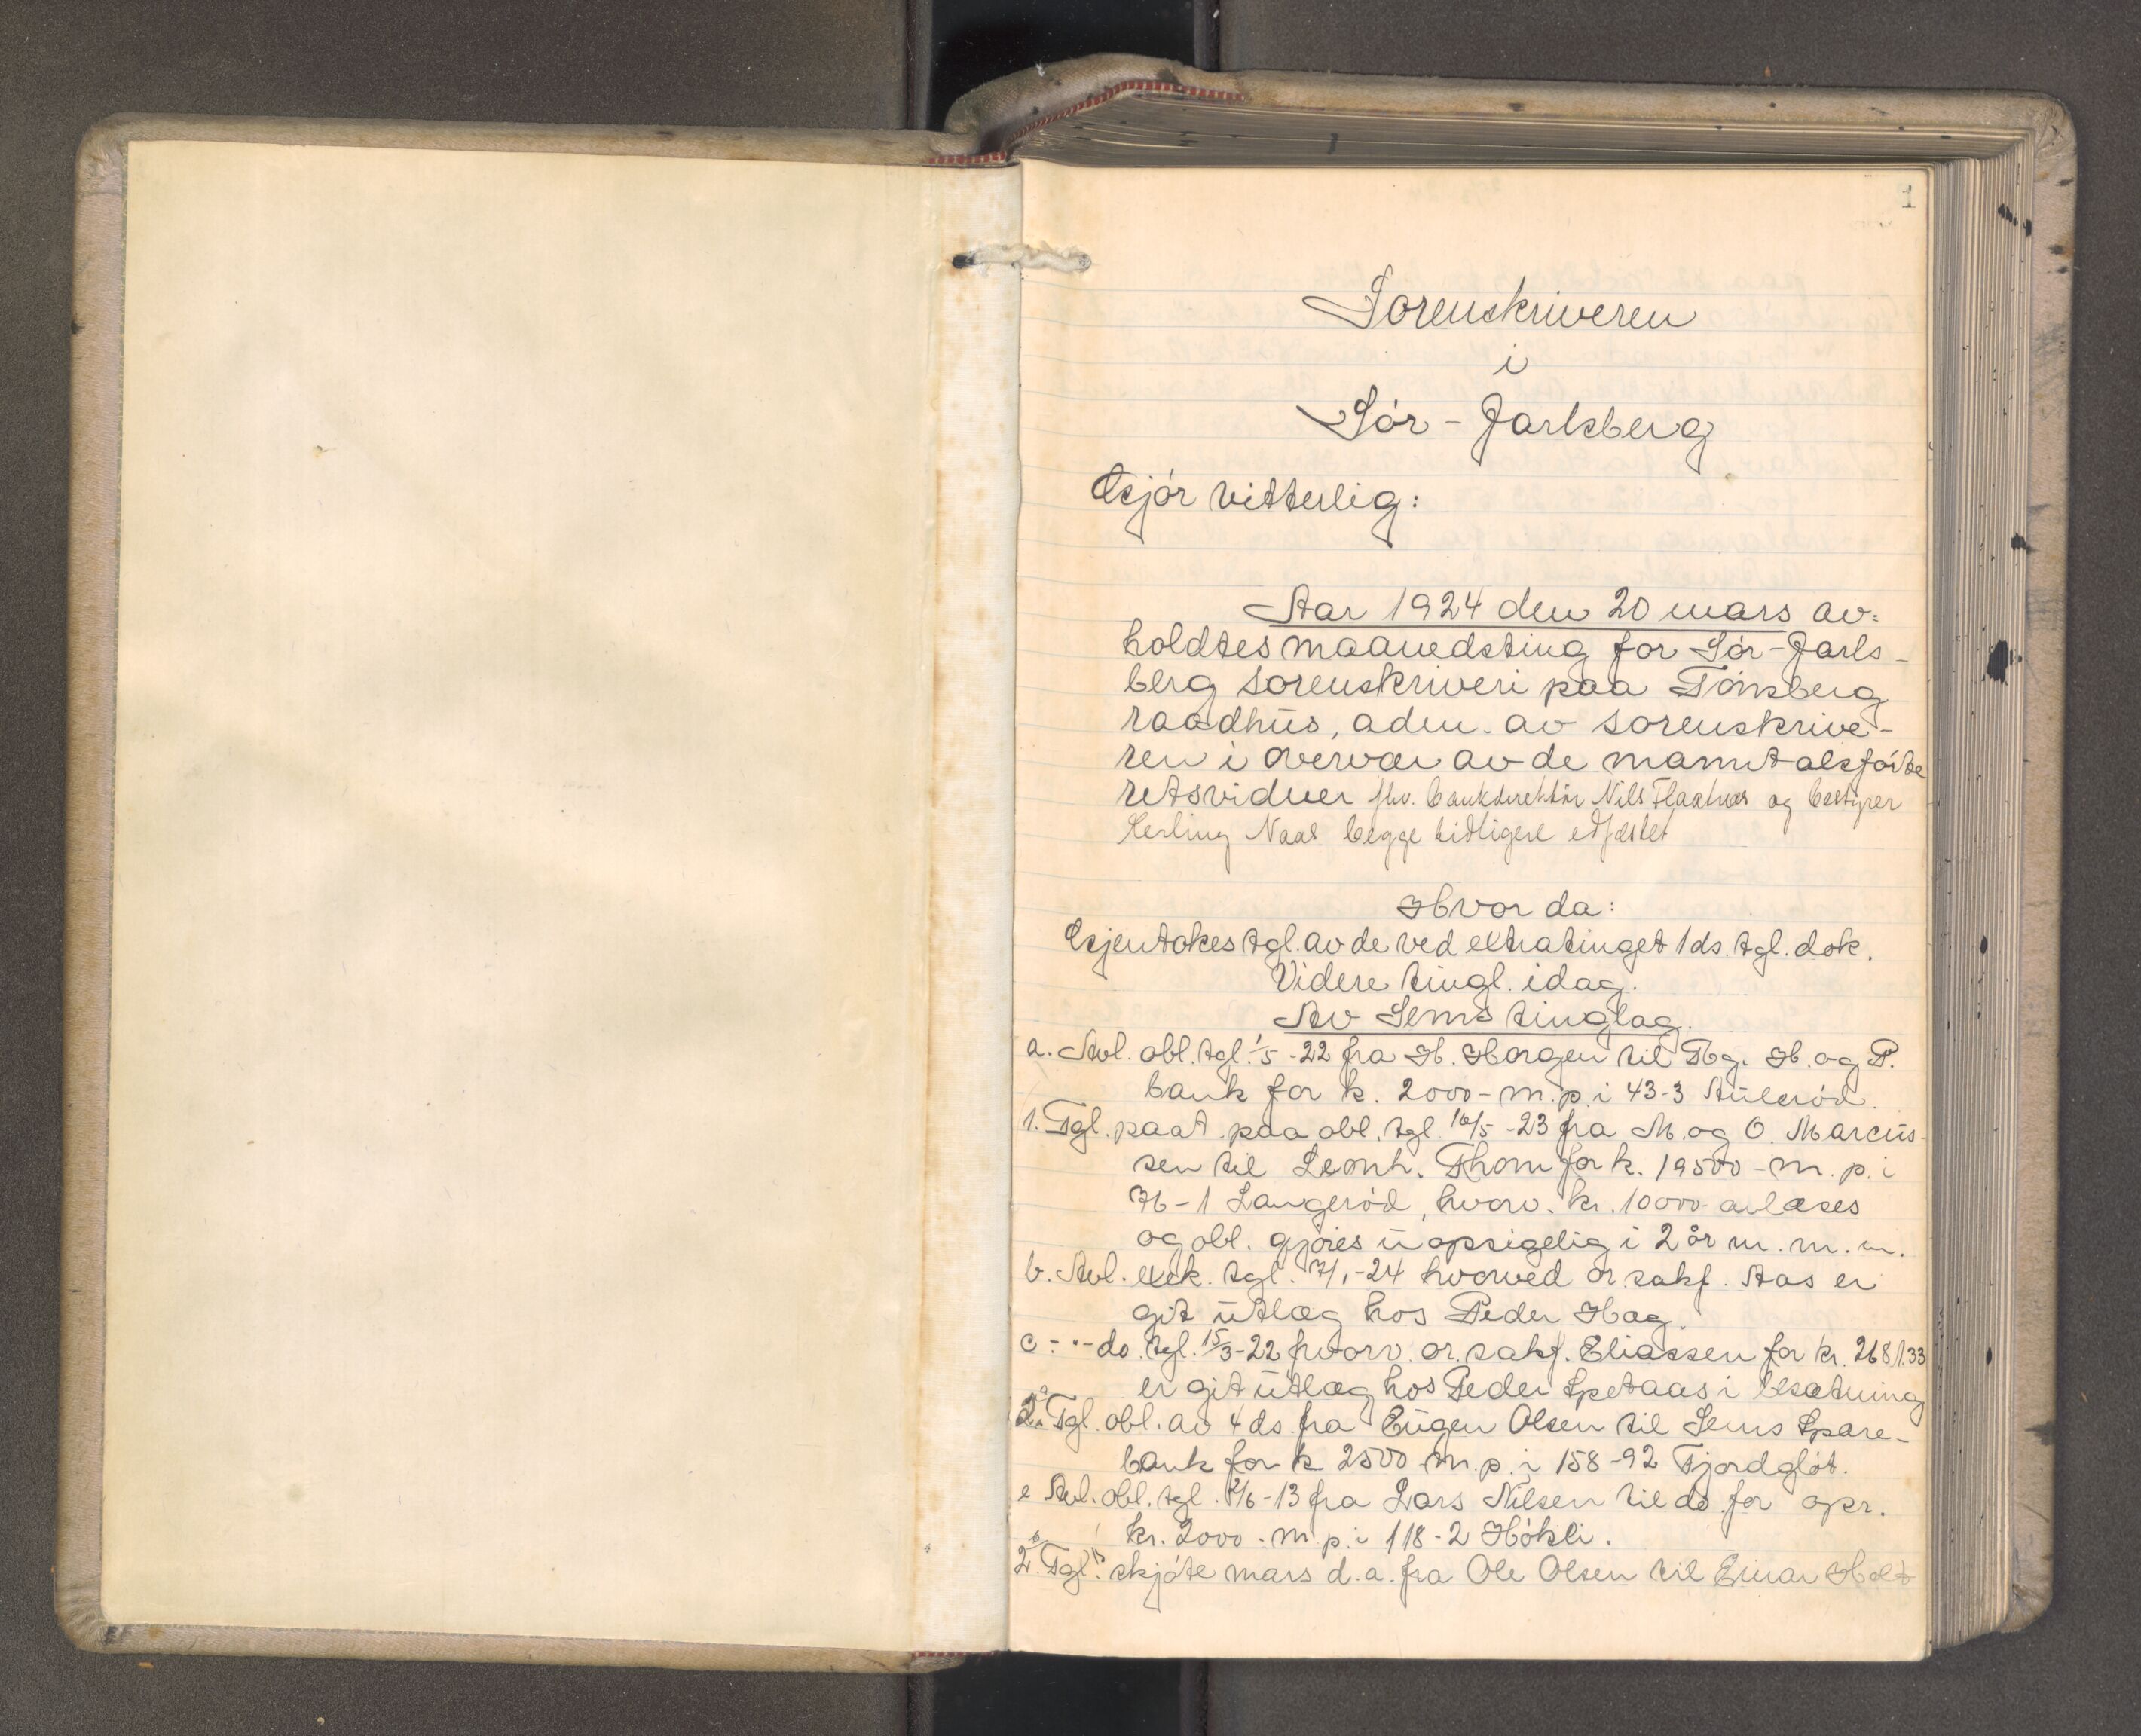 1
Sorenskriveren
i
Sór-Jarlsberg
Gjór vitterlig:
Aar 1924 den 20 mars av=
holdtes maanedsting for Sór-Jarls-
berg sorenskriveri paa Tónsberg
raadhus, adm. av sorenskrive-
ren i overvær av de manntalsfórte
retsvidner fhv. bankdirektör Nils Flaatnes og bestyrer
Kerling Naas begge tidligere edfæstet
Hvor da:
Gjentokes tgl. av de ved extratinget 1 ds. tgl. dok.
Videre tingl. idag.
Av Sems tinglag.
a. Avl. obl. tgl. 1/5-22 fra H. Horgen til Tbg. H. og P.
bank for k. 2000- m. p. i 43-3 Auleród.
1. Tgl. paat. paa obl. tgl. 16/5-23 fra M. og O. Marcus-
sen til Leonh. Thom for k. 19500- m. p. i
76-1 Langeród, hvorv. kr. 10000- avlæses
og obl. gjóres uopsigelig i 2 år m. m. m.
b. Avl. exek. tgl. 7/1-24 hvorved or. sakf. Aas er
git utlæg hos Peder Hag.
c - " - do. tgl. 15/3-22 hvorv. or. sakf. Eliassen for kr. 2681.33
er git utlæg hos Peder Spetaas i besætning
2a Tgl. obl. av 4 ds. fra Eugen Olsen til Sems Spare-
bank for k 2500 m. p. i 158-92 Fjordglót.
e Avl. obl. tgl. 2/6-13 fra Lars Nilsen til do. for opr.
kr. 2000- m. p. i 118-2 Hókli.
2b. Tgl. skjóte mars d. a. fra Ole Olsen til Einar Holt